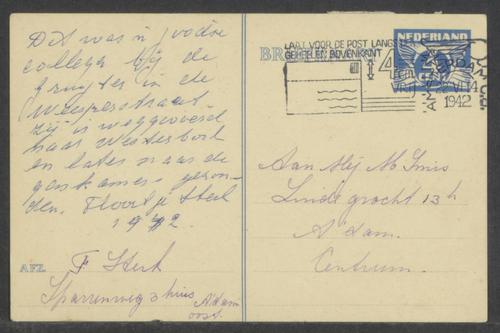 Dit was 'n joodse
collega bij de
gruyter in de
Weesperstraat
zij is weggevoerd
naar Westerbork
en later naar de
gaskamer gezon-
den. Flootje Sterk
1942
AFZ. F Sterk
Sparrenweg 3 huis A'dam
oost.
LAAT VOOR DE POST LANGS
GEHEELE BOVENKANT
NEDERLAND
1942
Aan Mej M Smis
Lindegracht 13 h
A'dam.
Centrum.